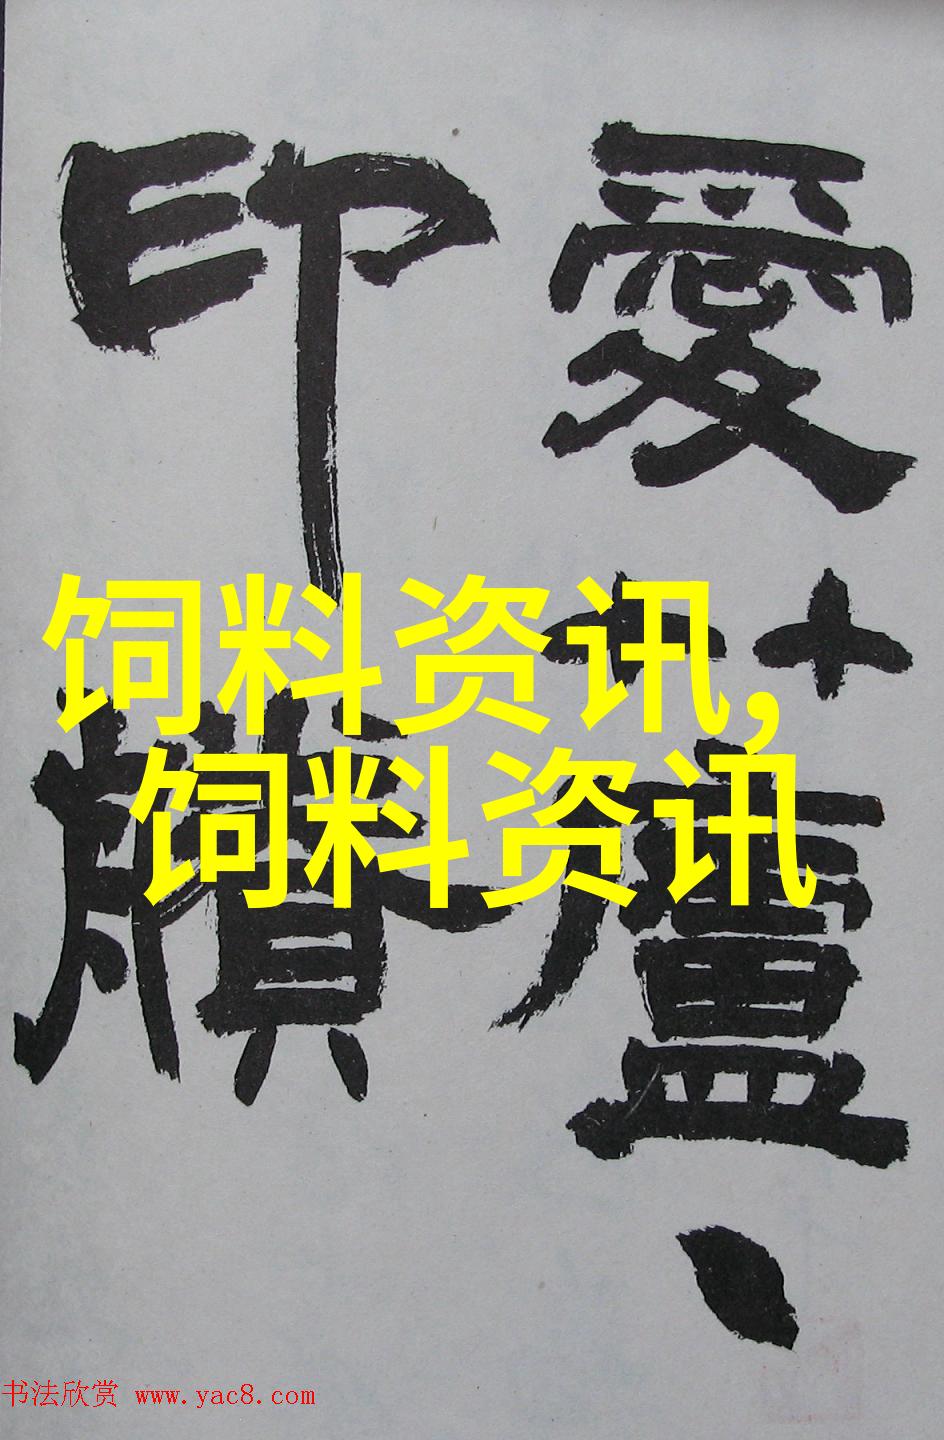 愛廬、
印牘
饲料资讯,
饲料资讯
书法欣赏 www.yac8.com